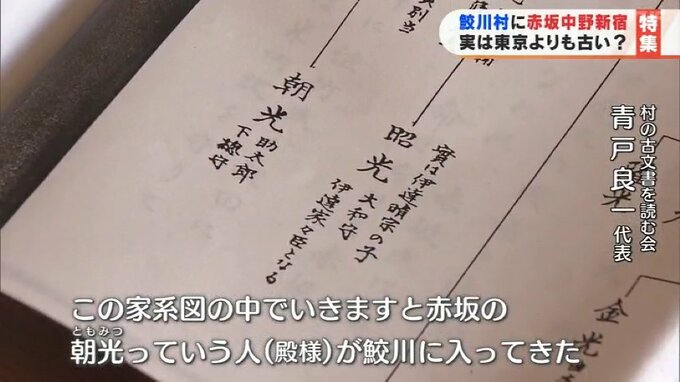 鮫川村に赤坂中野新宿
実は東京よりも古い？
特集
村の古文書を読む会
青戸良一 代表
別当
朝光 助太郎
下総守
昭光 大和守
實は伊達晴宗の子
伊達家々臣となる
金光
この家系図の中でいきますと赤坂の
ともみつ
朝光っていう人(殿様)が鮫川に入ってきた